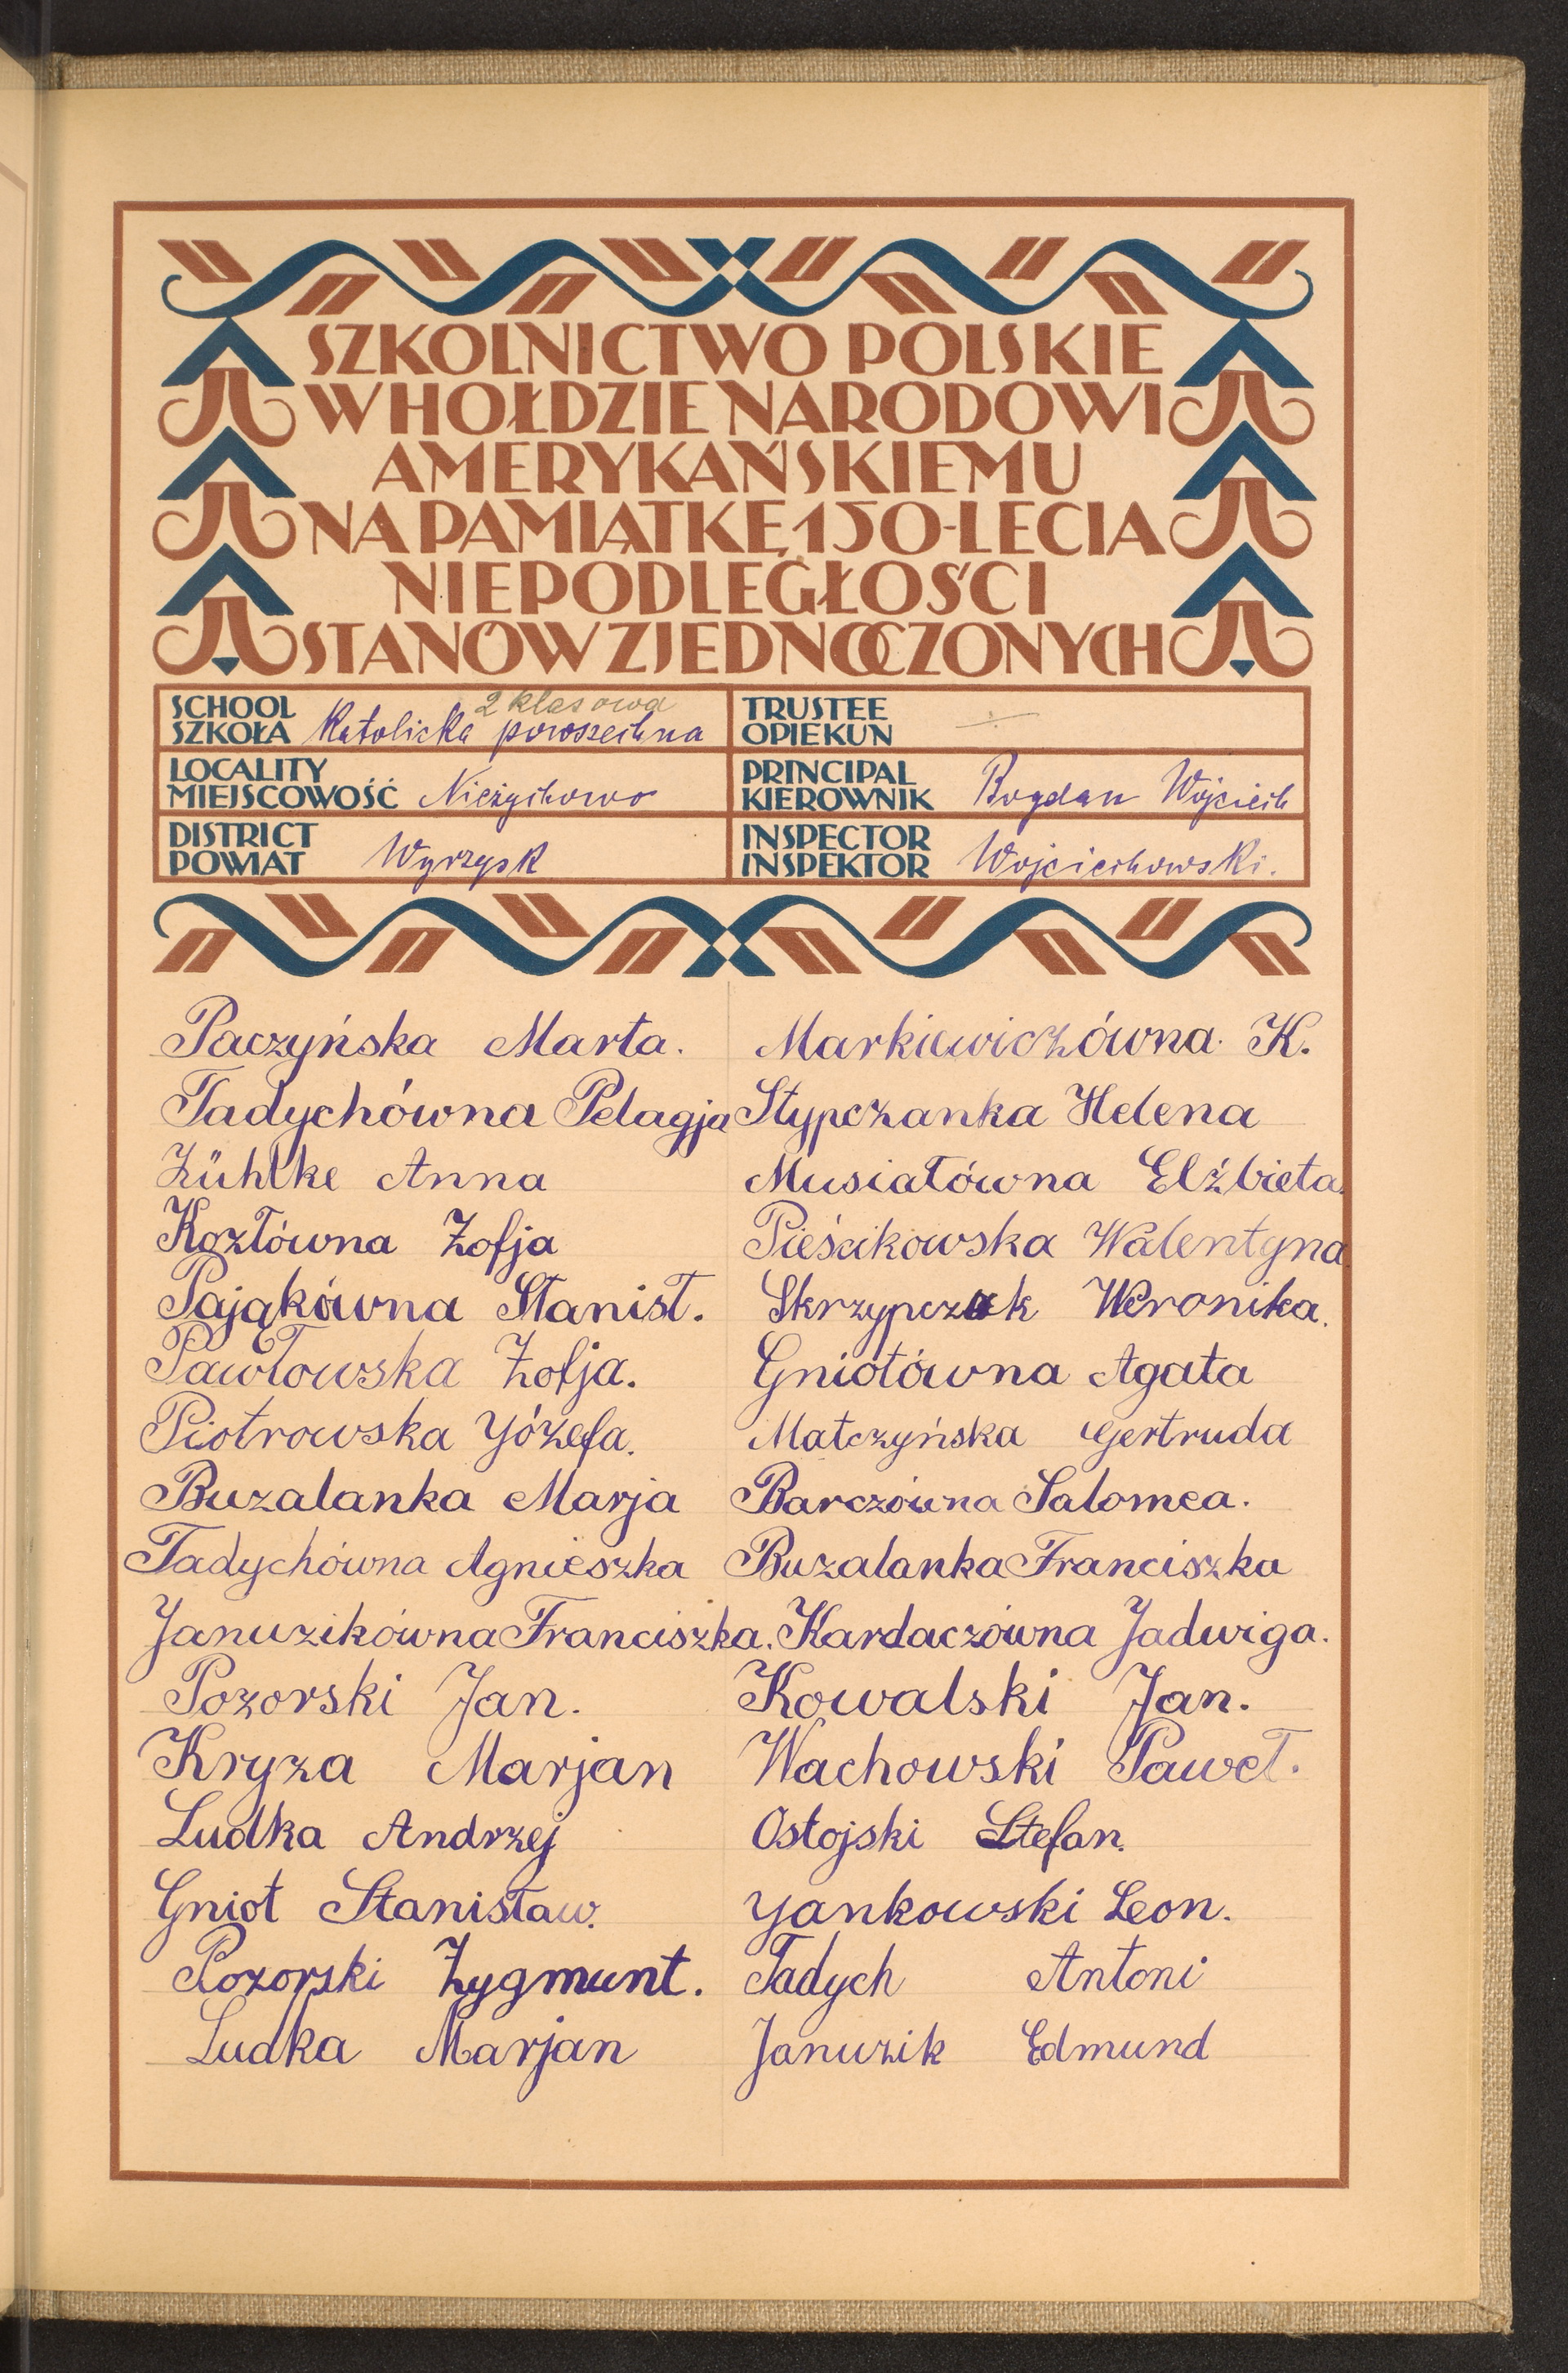 SZKOLNICTWO POLSKIE
W HOŁDZIE NARODOWI
AMERYKAŃSKIEMU
NA PAMIĄTKĘ 150-LECIA
NIEPODLEGŁOŚCI
STANÓW ZJEDNOCZONYCH
SCHOOL
SZKOŁA
2 klasowa
Katolicka powszechna
TRUSTEE
OPIEKUN
LOCALITY
MIEJSCOWOŚĆ Nieżychowo
PRINCIPAL
KIEROWNIK Bogdan Wojciech
DISTRICT
POWIAT Wyrzysk
INSPECTOR
INSPEKTOR Wojciechowski.
Paczyńska Marta.
Tadychówna Pelagja
Zühlke Anna
Kozłówna Zofja
Pająkówna Stanisł.
Pawłowska Zofja.
Piotrowska Józefa.
Buzalanka Marja
Tadychówna Agnieszka
Januzikówna Franciszka.
Pozorski Jan.
Kryza Marjan
Ludka Andrzej
Gniot Stanisław.
Pozorski Zygmunt.
Ludka Marjan
Markiewiczówna K.
Stypczanka Helena
Musiałówna Elżbieta.
Pieścikowska Walentyna
Skrzypczak Weronika.
Gniotówna Agata
Matczyńska Gertruda
Barczówna Salomea.
Buzalanka Franciszka
Kardaczówna Jadwiga.
Kowalski Jan.
Wachowski Paweł.
Ostojski Stefan.
Jankowski Leon.
Tadych Antoni
Januzik Edmund